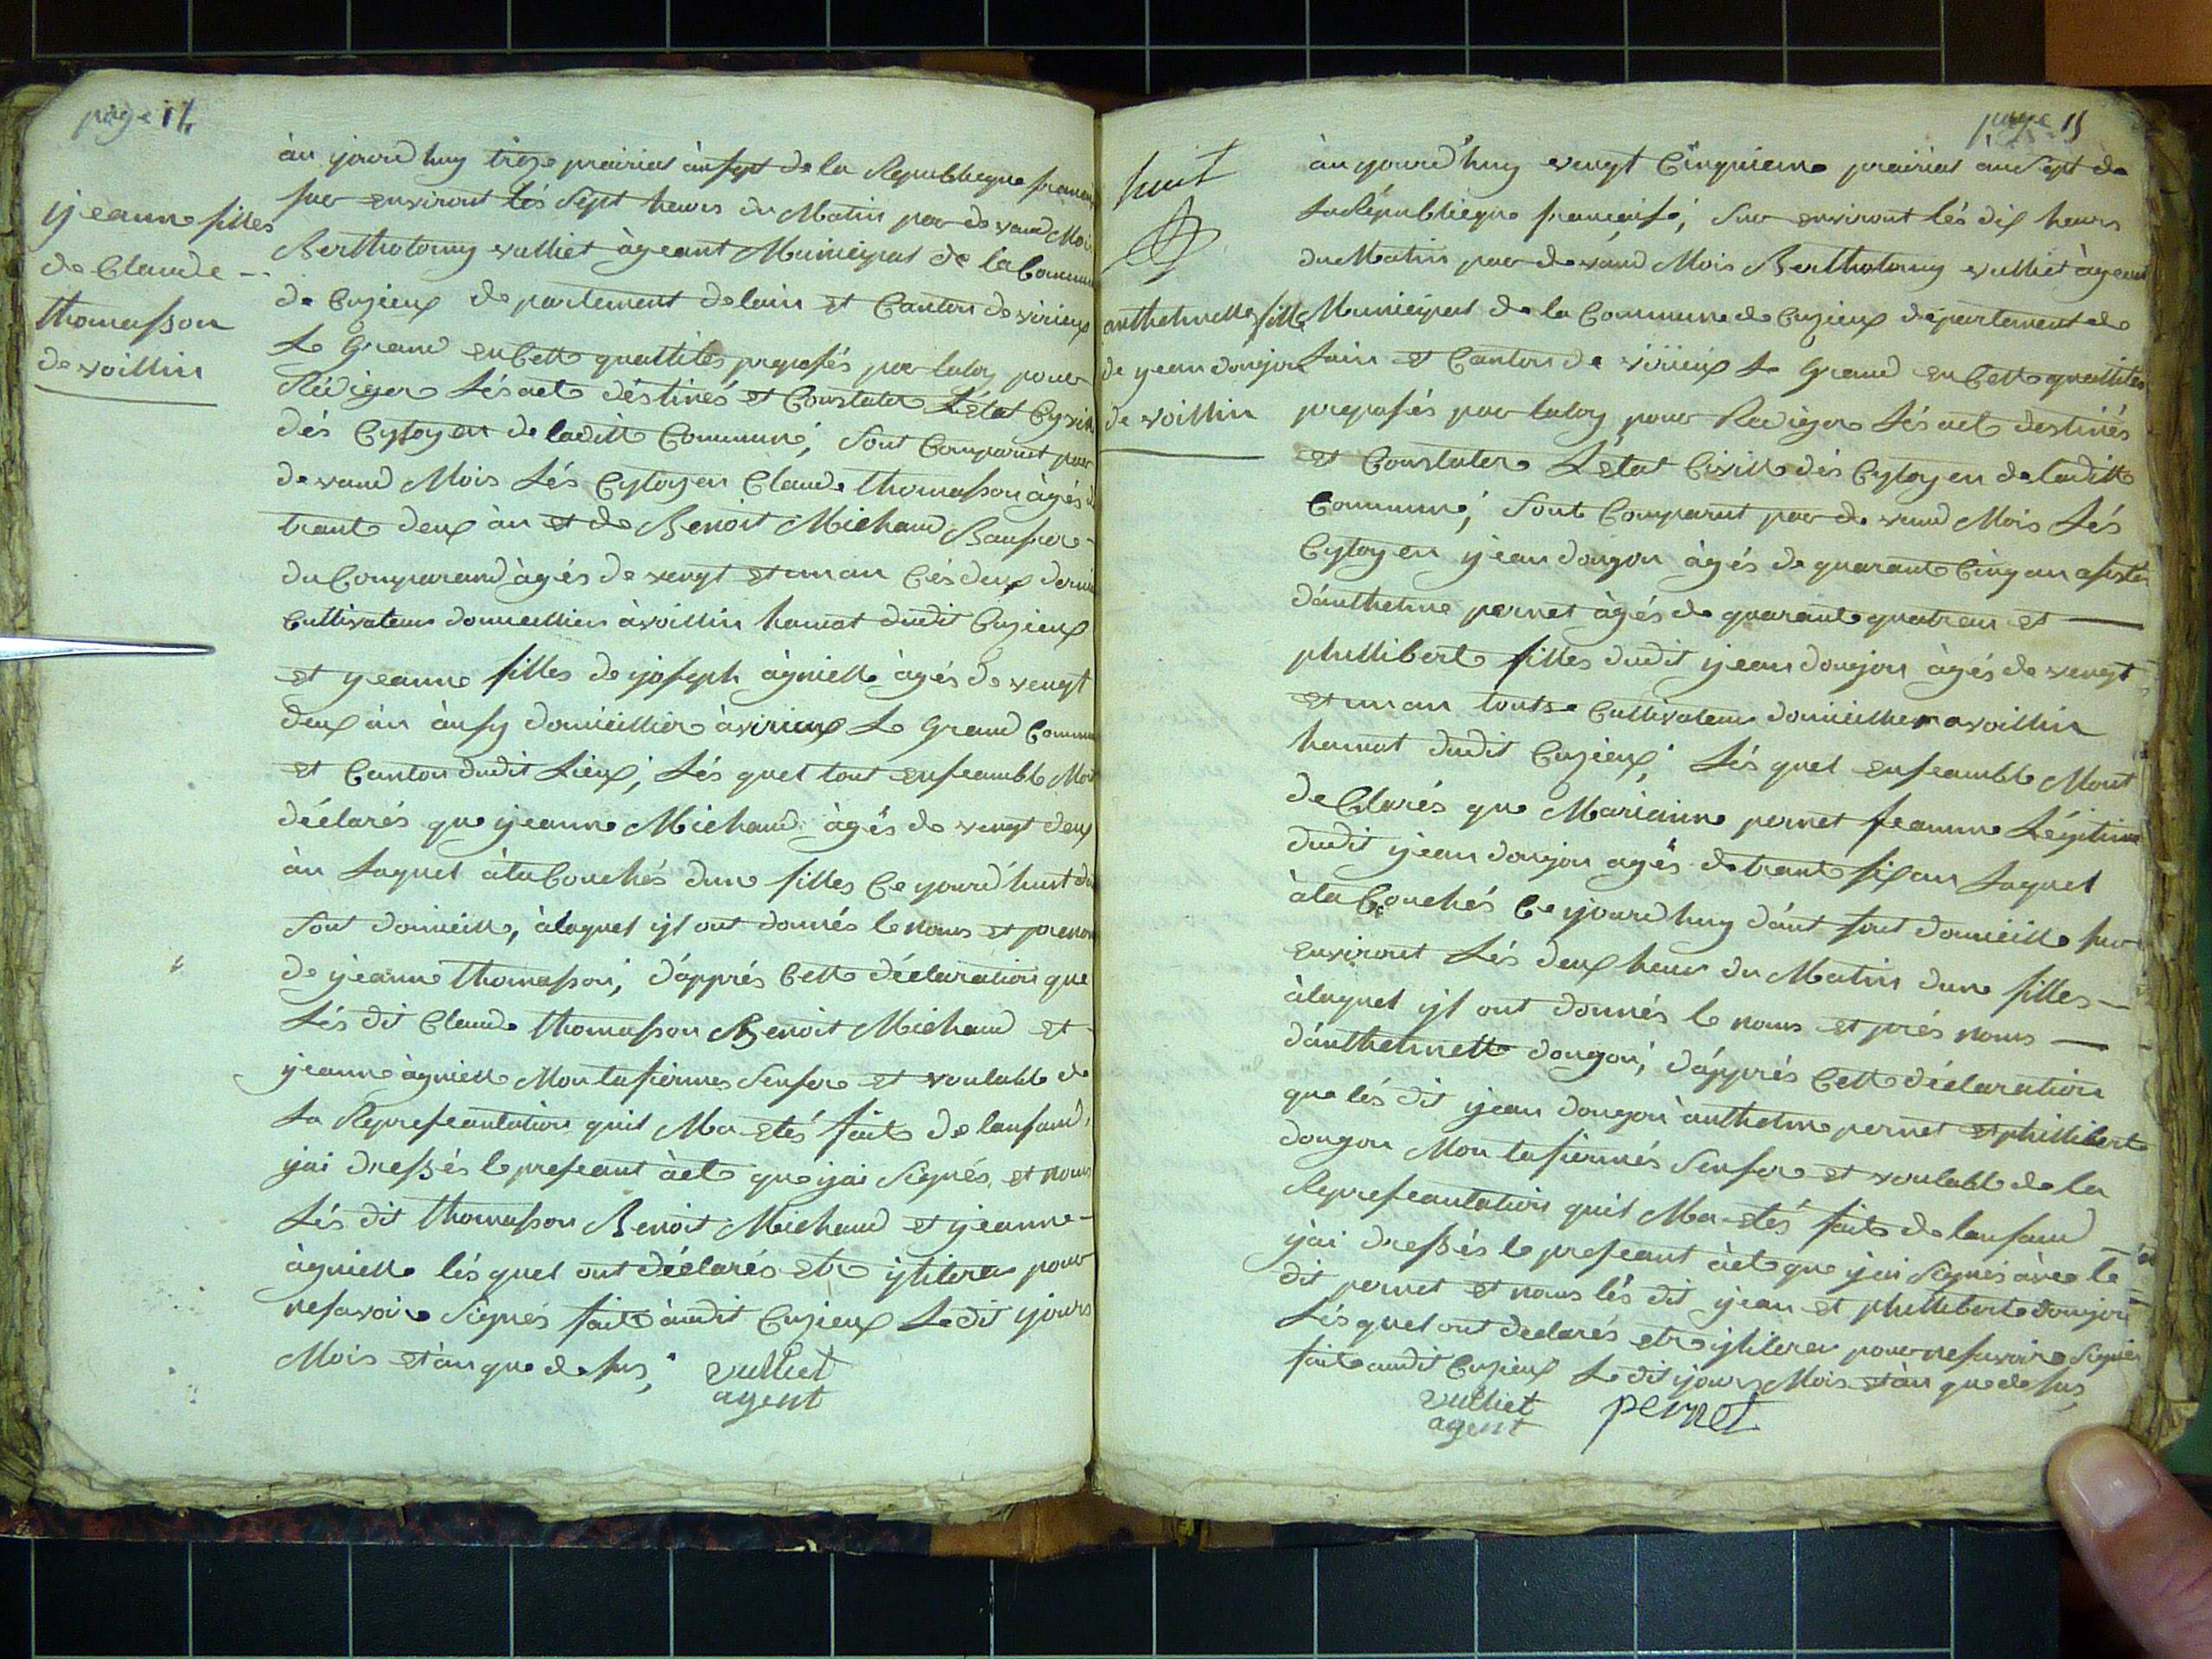 page 14
yjeanne filles
de Claude
thomasson
de voillin
àu yjourd huy treze prairial àn sept de la Republiegue francai
sur environt lés sept heurs du Matin par de vand Moi
Bertholomy vulliet àgeant Municipal de la Commun
de Cuzieux departement de lain et Canton de virieux
Le Grand en Cette quallités preposés par laloy pour
Rédiger Lés acte déstinés et Constater L'état Cyvill
dés Cytoyen de laditte Commune, sont Comparut par
de vand Mois Lés Cytoyen Claude thomasson àgés d
trante deux àn et de Benoit Michaud Bausrer
du Comparand àgés de vengt et un an Cés deux dernie
Cultivateur domicillier à voillin hamat dudit Cuzieux
et yjeanne filles de yjoseph àgniell àgés de vengt
deux àn àussy domicillier à virieux Le Grand Commun
et Canton dudit Lieux, Lés quel tout enseamble Mont
déclarés que yjeanne Michaud àgés de vengt deux
àn Laquel àla Couchés dune filles Ce yjourd'huit dan
sont domicille, àlaquel yl ont donnés le noms et prenom
de yjeanne thomasson, d'apprés Cette déclaration que
Lés dit Claude thomasson Benoit Michaud et
yjeanne àgniell Mont afiermes senfere et voulable de
La Represeantation quil Ma etés faite de lanfand,
yjai dressés le preseant àcte que yjai Signés, et nous
Lés dit thomasson Benoit Michaud et yjeanne
àgniell lés quel ont déclarés etre yliterer pour
ne savoire Signés faitte àudit Cuzieux Ledit yjours
Mois et àn que de sus,
vulliet
agent
page 15
huit
anthelmette fille
de yjean donjon
de voillin
àu yjourd'huy vengt Cinquieme prairial àn Sept de
La Républiegue francaise, sur environt lés dix heurs
du Matin par de vand Mois Bertholomy vulliet àgeant
Municipal de la Commune de Cuzieux département de
Lain et Canton de virieux Le Grand en Cette quallités
preposés par laloy pour Rediger Lés acte destinés
et Constater L'état Civill dés Cytoyen de laditte
Commune, sont Comparut par de vand Mois Lés
Cytoyen yjean dongon àgés de quarante Cinq an asisté
d'anthelme pernet àgés de quarante quatre an et
phillibert filles dudit yjean donjon àgés de vengt
et un an touts Cultivateur domicillier a voillin
hamat dudit Cuzieux, Lés quel enseamble Mont
de Clarés que Marianne pernet feamme Légitime
dudit yjean donjon agés de trante six an Laquel
àla Couchés Ce yjourd huy dánt sont domicille sur
environt Lés deux heur du Matin dune filles
àlaquel yl ont donnés le noms et prés noms
d'anthelmette dongon, d'apprés Cette déclaration
que lés dit yjean dongon anthelme pernet et phillibert
dongon Mont afiermés senfere et voulable de la
Represeantation quil Ma etés faite de lanfand
yjai dressés le preseant àcte que yjai Signés àvec le
dit pernet et nous lés dit yjean et phillibert donjon
Lés quel ont declarés etre ylliterer pour ne savoire Signer
faite audit Cuzieux Le dit yjours Mois et àn que de sus
vulliet
agent
pernet